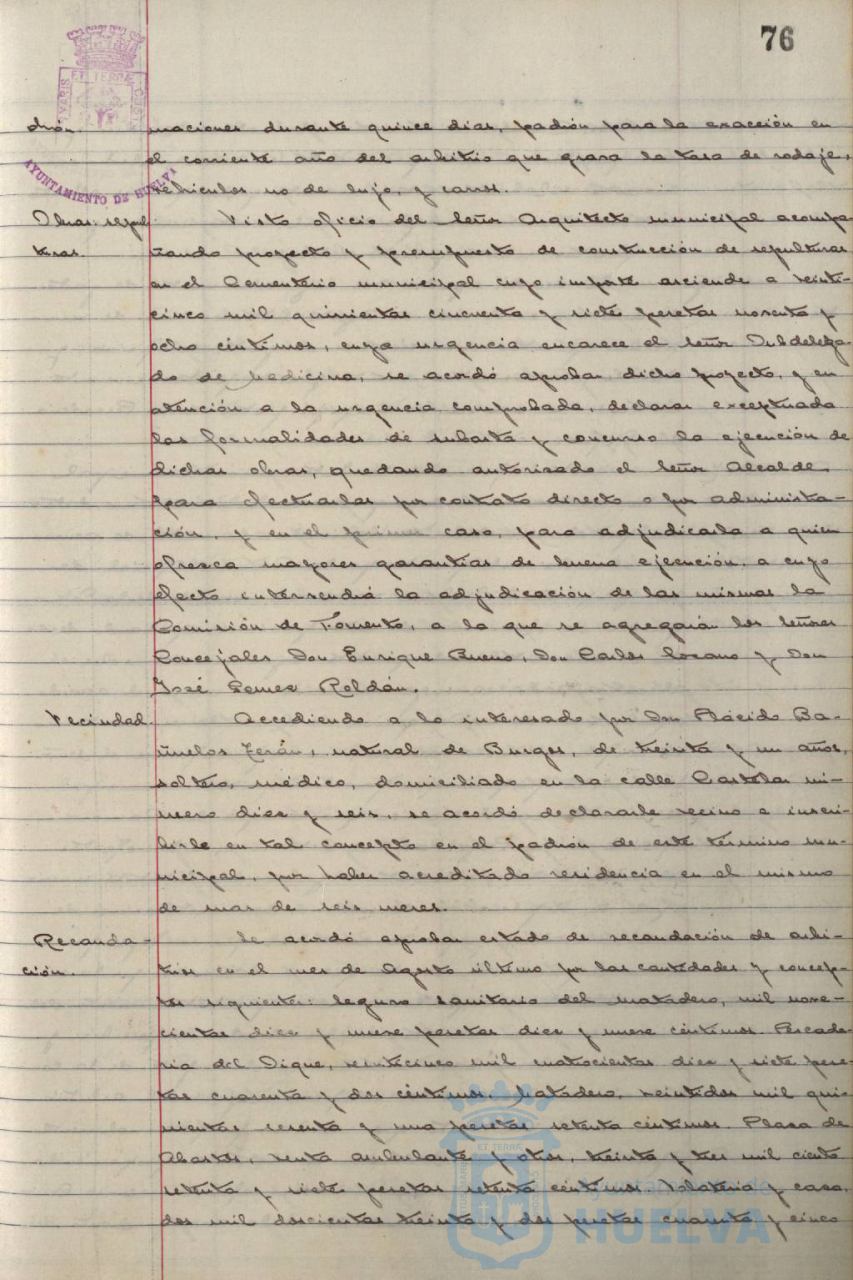 76
ET TERRÆ
AYUNTAMIENTO DE HUELVA
drón. maciones durante quince dias, padrón para la exacción en
el corriente año del arbitrio que grava la tasa de rodaje,
vehiculos no de lujo, y carros.
Obras: sepul- Visto oficio del Señor Arquitecto municipal acompa-
turas. ñando proyecto y presupuesto de construcción de sepulturas
en el Cementerio municipal cuyo importe asciende a veinti-
cinco mil quinientas cincuenta y siete pesetas noventa y
ocho céntimos, cuya urgencia encarece el Señor Subdelega-
do de Medicina, se acordó aprobar dicho proyecto, y en
atención a la urgencia comprobada, declarar exceptuada
las formalidades de subasta y concurso la ejecución de
dichas obras, quedando autorizado el Señor Alcalde
para efectuarlas por contrato directo o por administra-
ción, y en el primer caso, para adjudicarla a quien
ofrezca mayores garantias de buena ejecución, a cuyo
efecto intervendrá la adjudicación de las mismas la
Comisión de Fomento, a la que se agregarán los Señores
Concejales Don Enrique Bueno, Don Carlos Lozano y Don
José Gomez Roldán.
Vecindad. Accediendo a lo interesado por Don Plácido Ba-
ñuelos Terán, natural de Burgos, de treinta y un años,
soltero, médico, domiciliado en la calle Castelar nú-
mero diez y seis, se acordó declararle vecino e inscri-
birle en tal concepto en el padrón de este término mu-
nicipal, por haber acreditado residencia en el mismo
de mas de seis meses.
Recauda- Se acordó aprobar estado de recaudación de arbi-
ción. trios en el mes de Agosto último por las cantidades y concep-
tos siguientes: Seguro sanitario del matadero, mil nove-
cientas diez y nueve pesetas diez y nueve céntimos. Pescade-
ria del Dique, veinticinco mil cuatrocientas diez y siete pese-
tas cuarenta y dos céntimos. Matadero, veintidos mil qui-
nientas sesenta y una pesetas setenta céntimos. Plaza de
Abastos, venta ambulante y otros, treinta y tres mil ciento
setenta y siete pesetas setenta céntimos. Volateria y caza,
dos mil doscientas treinta y dos pesetas cuarenta y cinco
ET TERRÆ
Ayuntamiento de
HUELVA